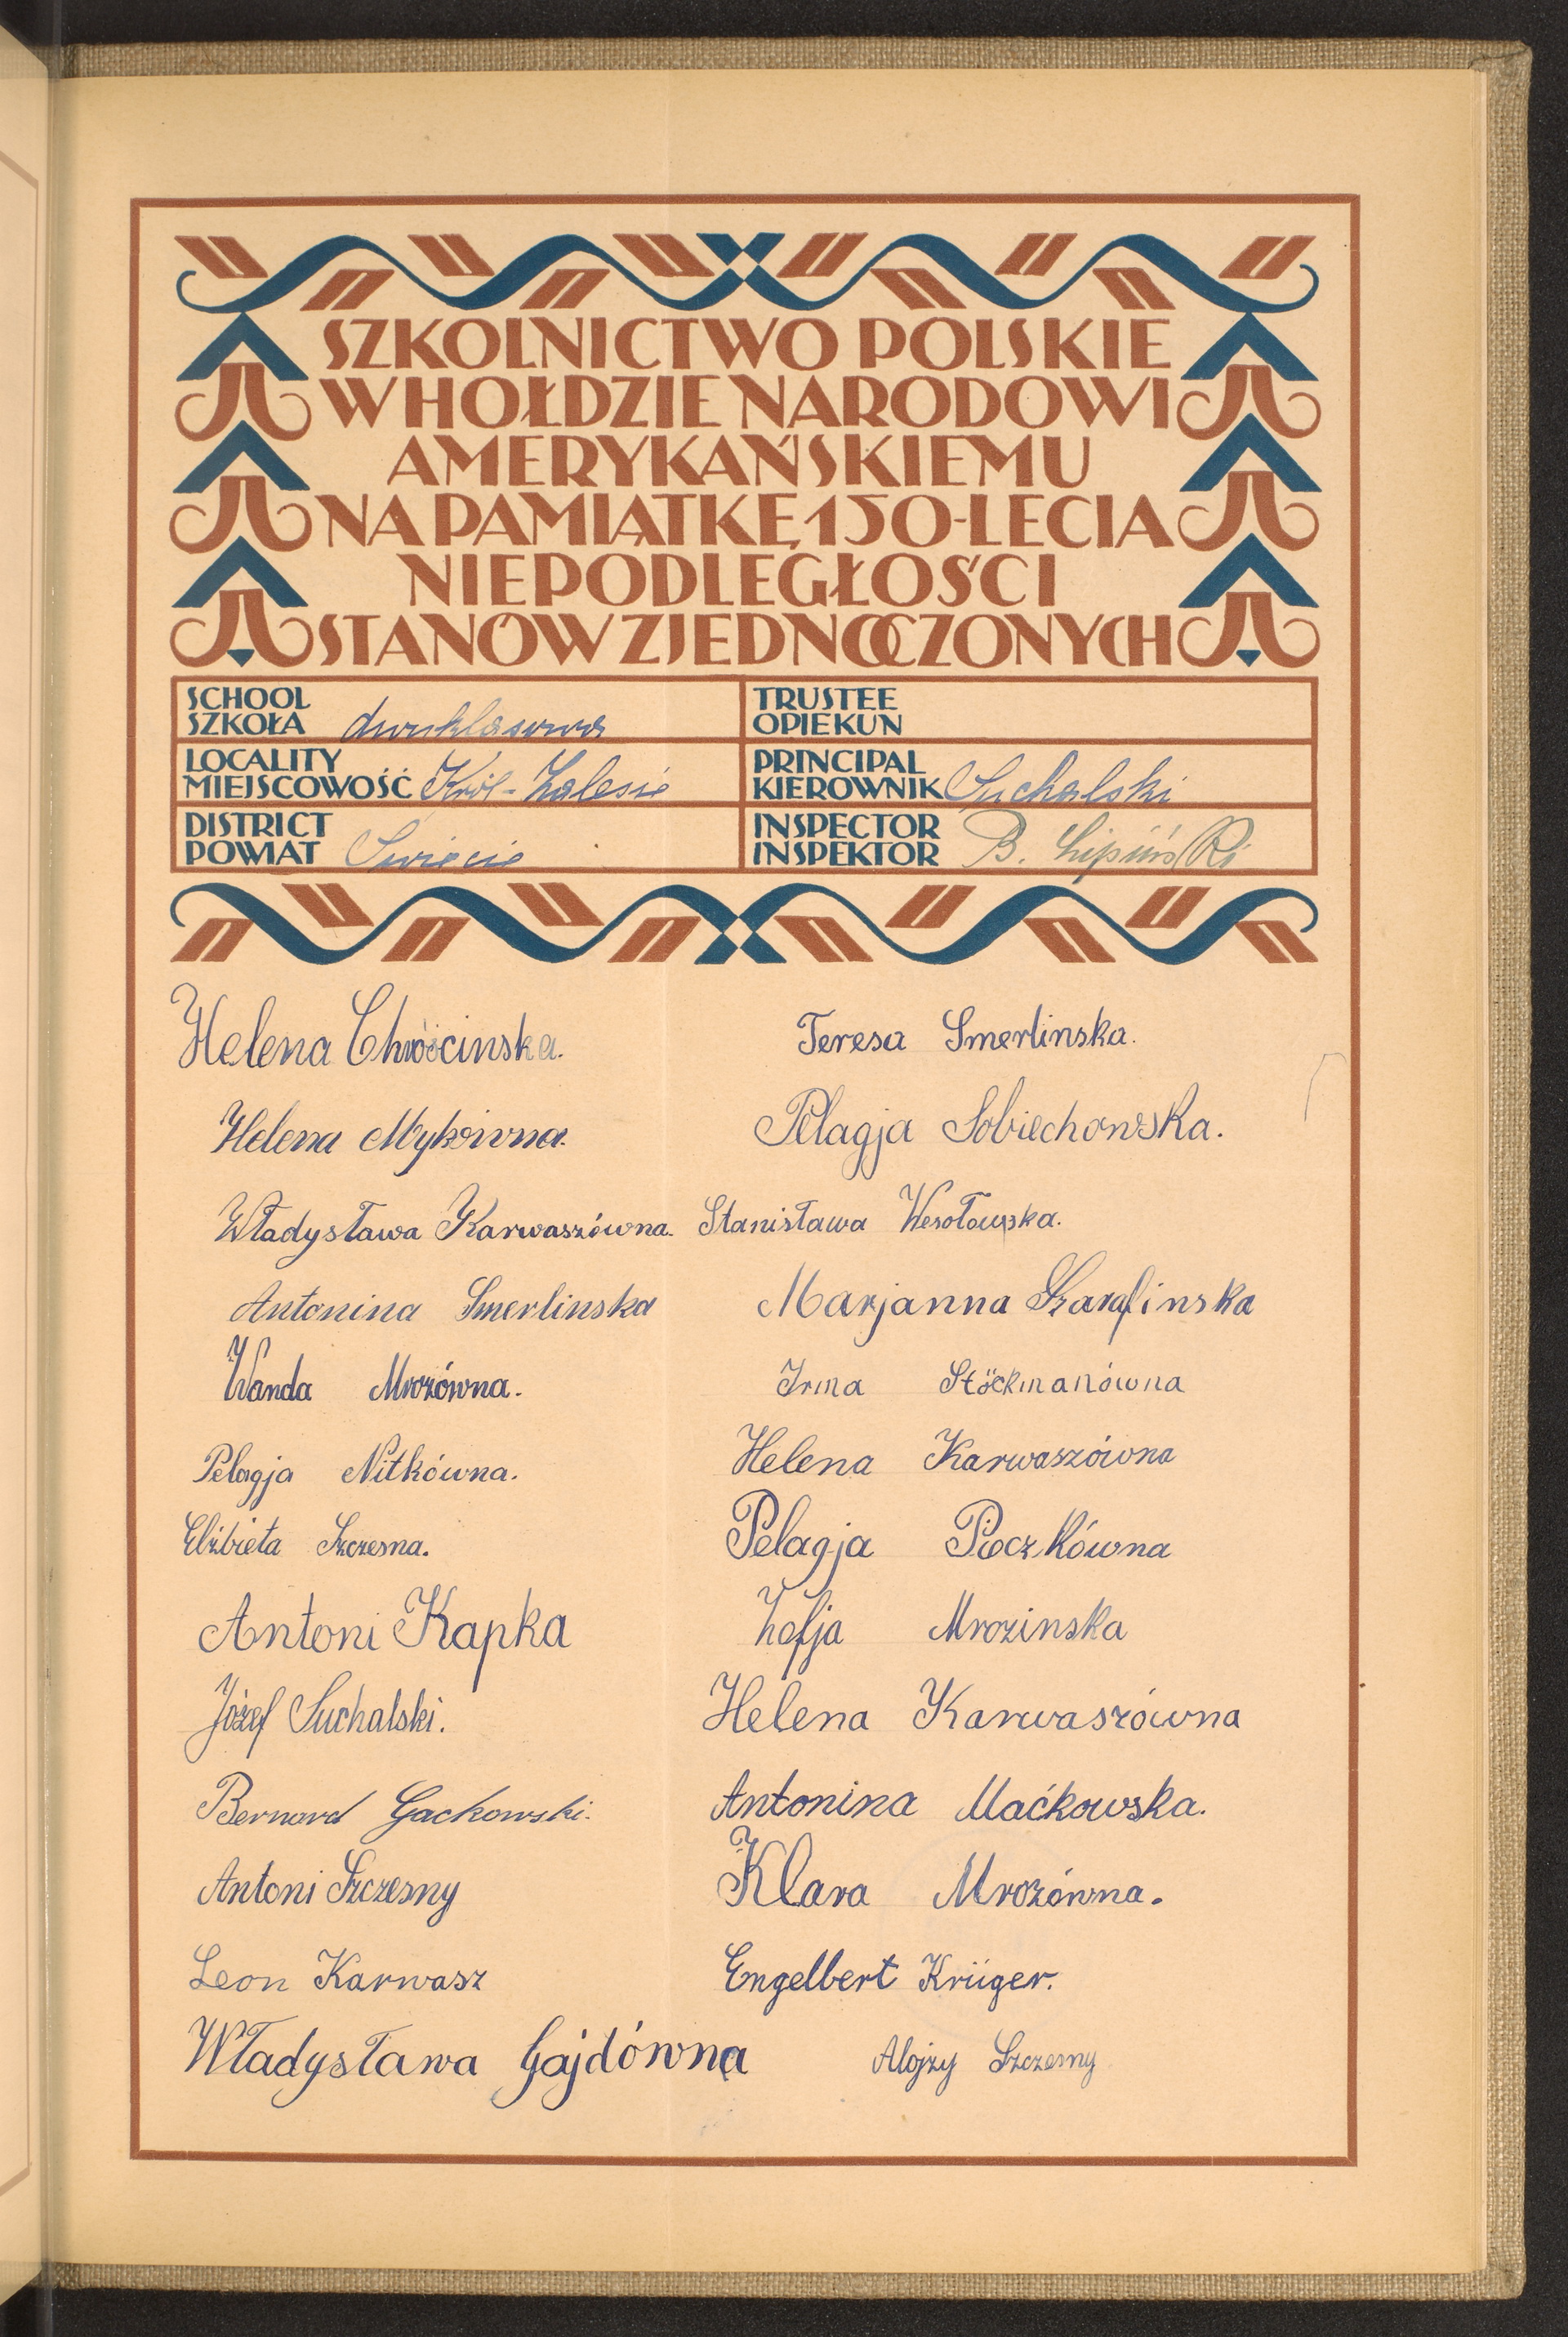 SZKOLNICTWO POLSKIE
W HOŁDZIE NARODOWI
AMERYKAŃSKIEMU
NA PAMIĄTKĘ 150-LECIA
NIEPODLEGŁOŚCI
STANÓW ZJEDNOCZONYCH
SCHOOL
SZKOŁA dwuklasowa
TRUSTEE
OPIEKUN
LOCALITY
MIEJSCOWOŚĆ Król-Zalesie
PRINCIPAL
KIEROWNIK Suchalski
DISTRICT
POWIAT Świecie
INSPECTOR
INSPEKTOR B. Lipiński
Helena Chróścinska.
Teresa Smerlinska.
Helena Mykówna.
Pelagja Sobiechowska.
Władysława Karwaszówna.
Stanisława Wesołowska.
Antonina Smerlinska
Marjanna Szarafinska
Wanda Mrozówna.
Irma Stöckmanówna
Pelagja Nitkówna.
Helena Karwaszówna
Elżbieta Szczesna.
Pelagja Pioczkówna
Antoni Kapka
Zofja Mrozinska
Józef Suchalski.
Helena Karwaszówna
Bernard Gackowski.
Antonina Maćkowska.
Antoni Szczesny
Klara Mrozówna.
Leon Karwasz
Engelbert Krüger.
Władysława Gajdówna
Alojzy Szczesny